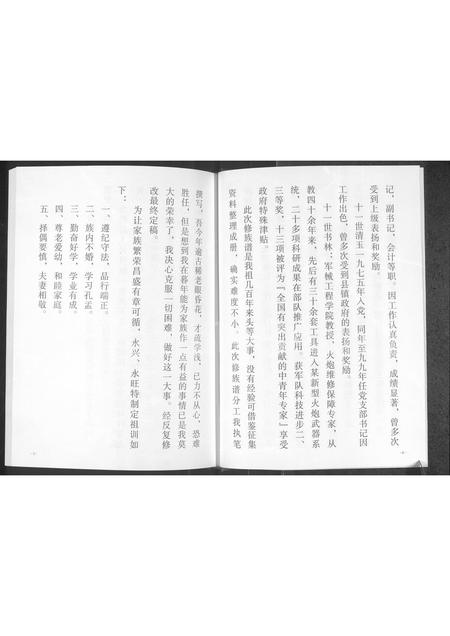 记，副书记，会计等职。因工作认真负责，成绩显著，曾多次
受到上级表扬和奖励。
十一世清玉一九七五年入党，同年至九九年任党支部书记因
工作出色，曾多次受到县镇政府的表扬和奖励。
十一世书林：军械工程学院教授，火炮维修保障专家，从
教四十余年来，先后有三十余套工具进入某新型火炮武器系
统，二十多项科研成果在部队推广应用。获军队科技进步二、
三等奖，十三项被评为“全国有突出贡献的中青年专家”享受
政府特殊津贴。
此次修族谱是我祖几百年来头等大事，没有经验可借鉴征集
资料整理成册，确实难度不小。此次修族谱分工我执笔
撰写，吾今年逾古稀老眼昏花，才疏学浅，已力不从心，恐难
胜任，但是想到我在暮年能为家族作一点有益的事情已是我莫
大的荣幸了，我决心克服一切困难，做好这一大事。经反复修
改最终定稿。
为让家族繁荣昌盛有章可循，永兴、永旺特制定祖训如
下：
一、遵纪守法，品行端正。
二、族内不婚，学习孔孟。
三、勤奋好学，学业有成。
四、尊老爱幼，和睦家庭。
五、择偶要慎，夫妻相敬。